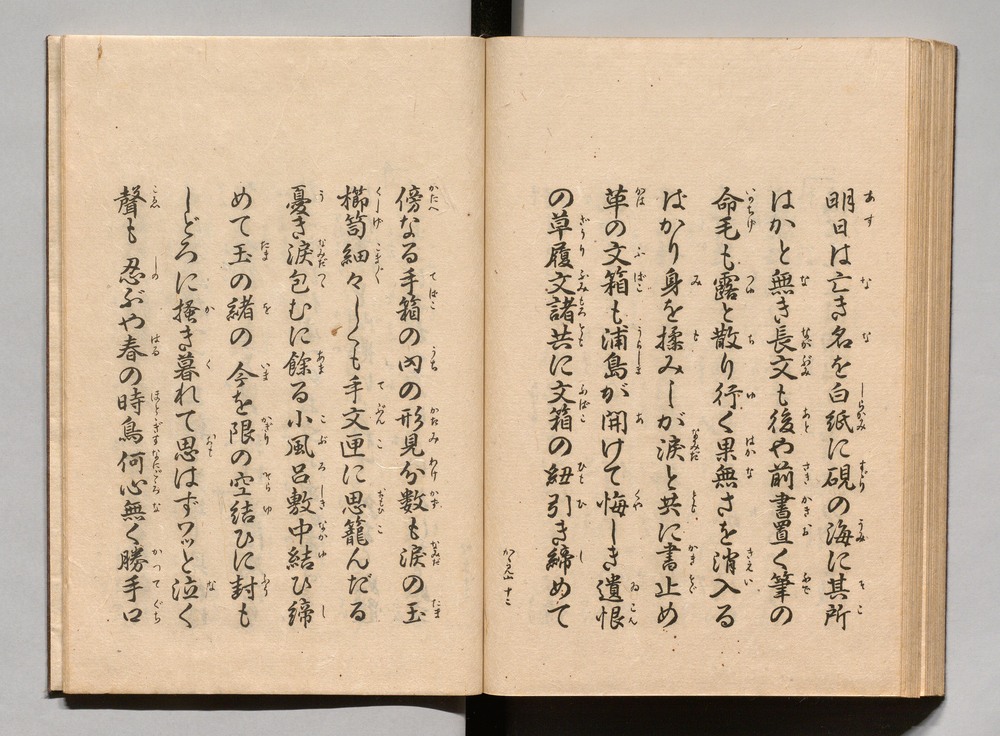 明日は亡き名を白紙に硯の海に其所
はかと無き長文も後や前書置く筆の
命毛も露と散り行く果無さを消入る
ばかり身を揉みしが涙と共に書止め
革の文箱も浦島が開けて悔しき遺恨
の草履文諸共に文箱の紐引き締めて
十二
傍なる手箱の内の形見分数も涙の玉
櫛笥細々しくも手文匣に思籠んだる
憂き涙包むに餘る小風呂敷中結ひ締
めて玉の緒の 今を限の空結ひに封も
しどろに掻き暮れて思はずワッと泣く
聲も 忍ぶや春の時鳥何心無く勝手口